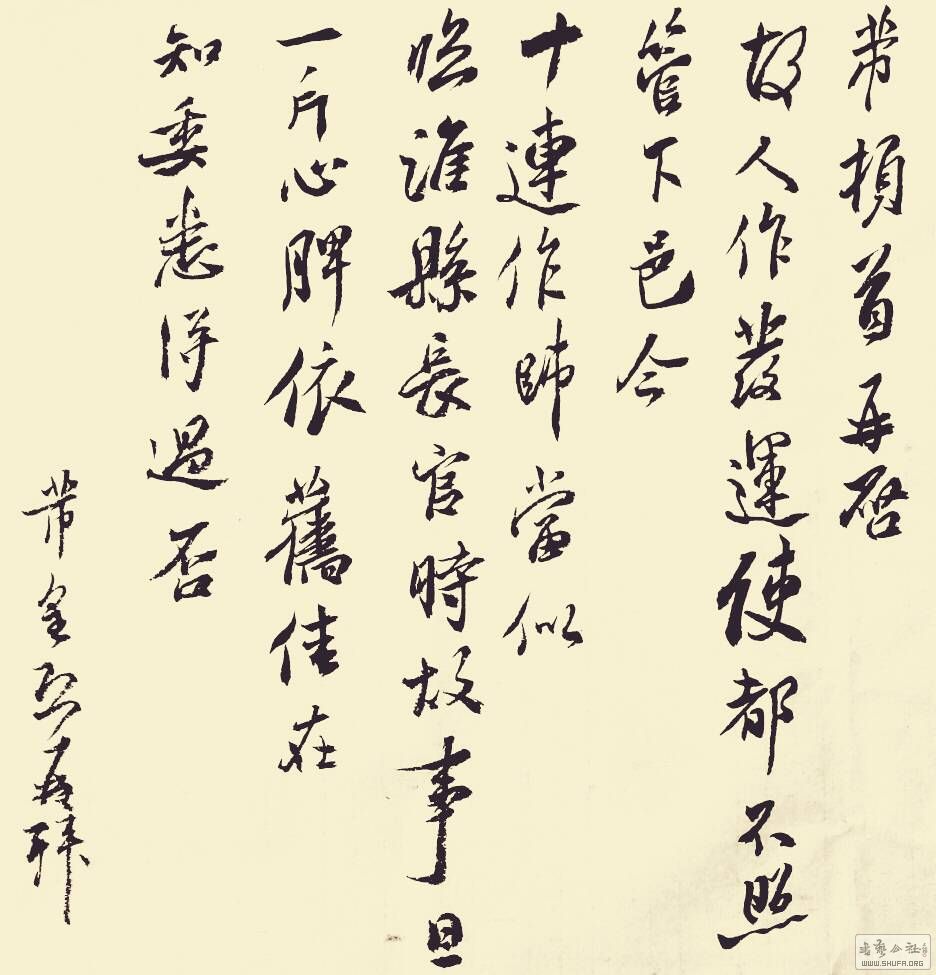 芾頓首再啓
故人作發運使都不照
管下邑今
十連作帥當似
臨淮縣長官時故事旦
一片心脾依舊佳在
知委悉得過否
芾皇恐再拜
书艺公社
WWW.SHUFA.ORG